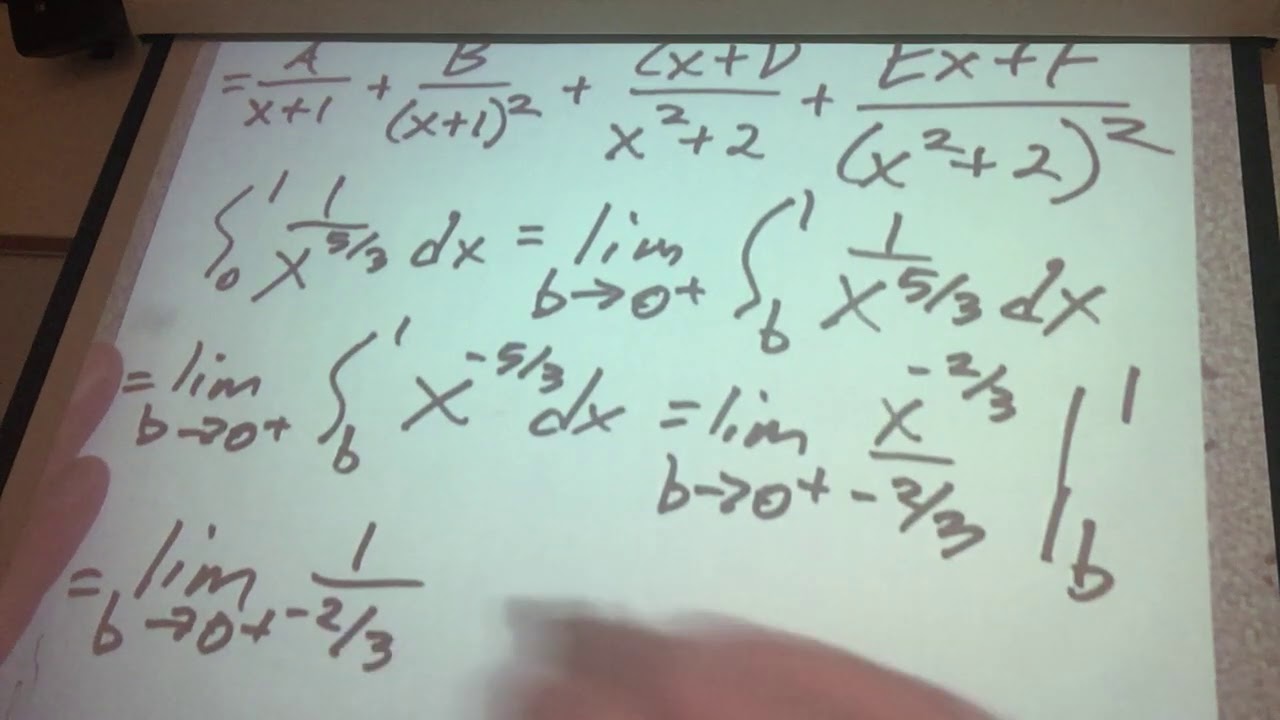 = A/(x+1) + B/(x+1)² + (Cx+D)/(x²+2) + (Ex+F)/(x²+2)²
∫₀¹ 1/x^(5/3) dx = lim b→0⁺ ∫_b¹ 1/x^(5/3) dx
= lim b→0⁺ ∫_b¹ x^(-5/3) dx = lim b→0⁺ x^(-2/3)/(-2/3) |_b¹
= lim b→0⁺ 1/(-2/3)